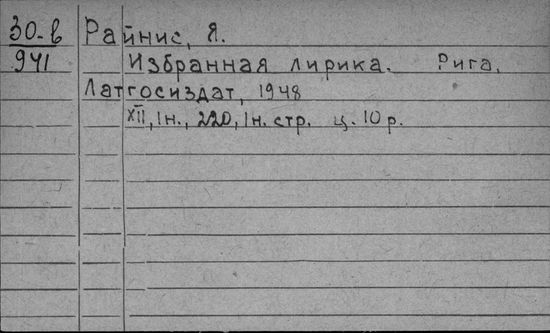 30-в Райнис, Я.
941 Избранная лирика. Рига,
Латгосиздат, 1948
XII, 1н., 220, 1н. стр. ц. 10 р.